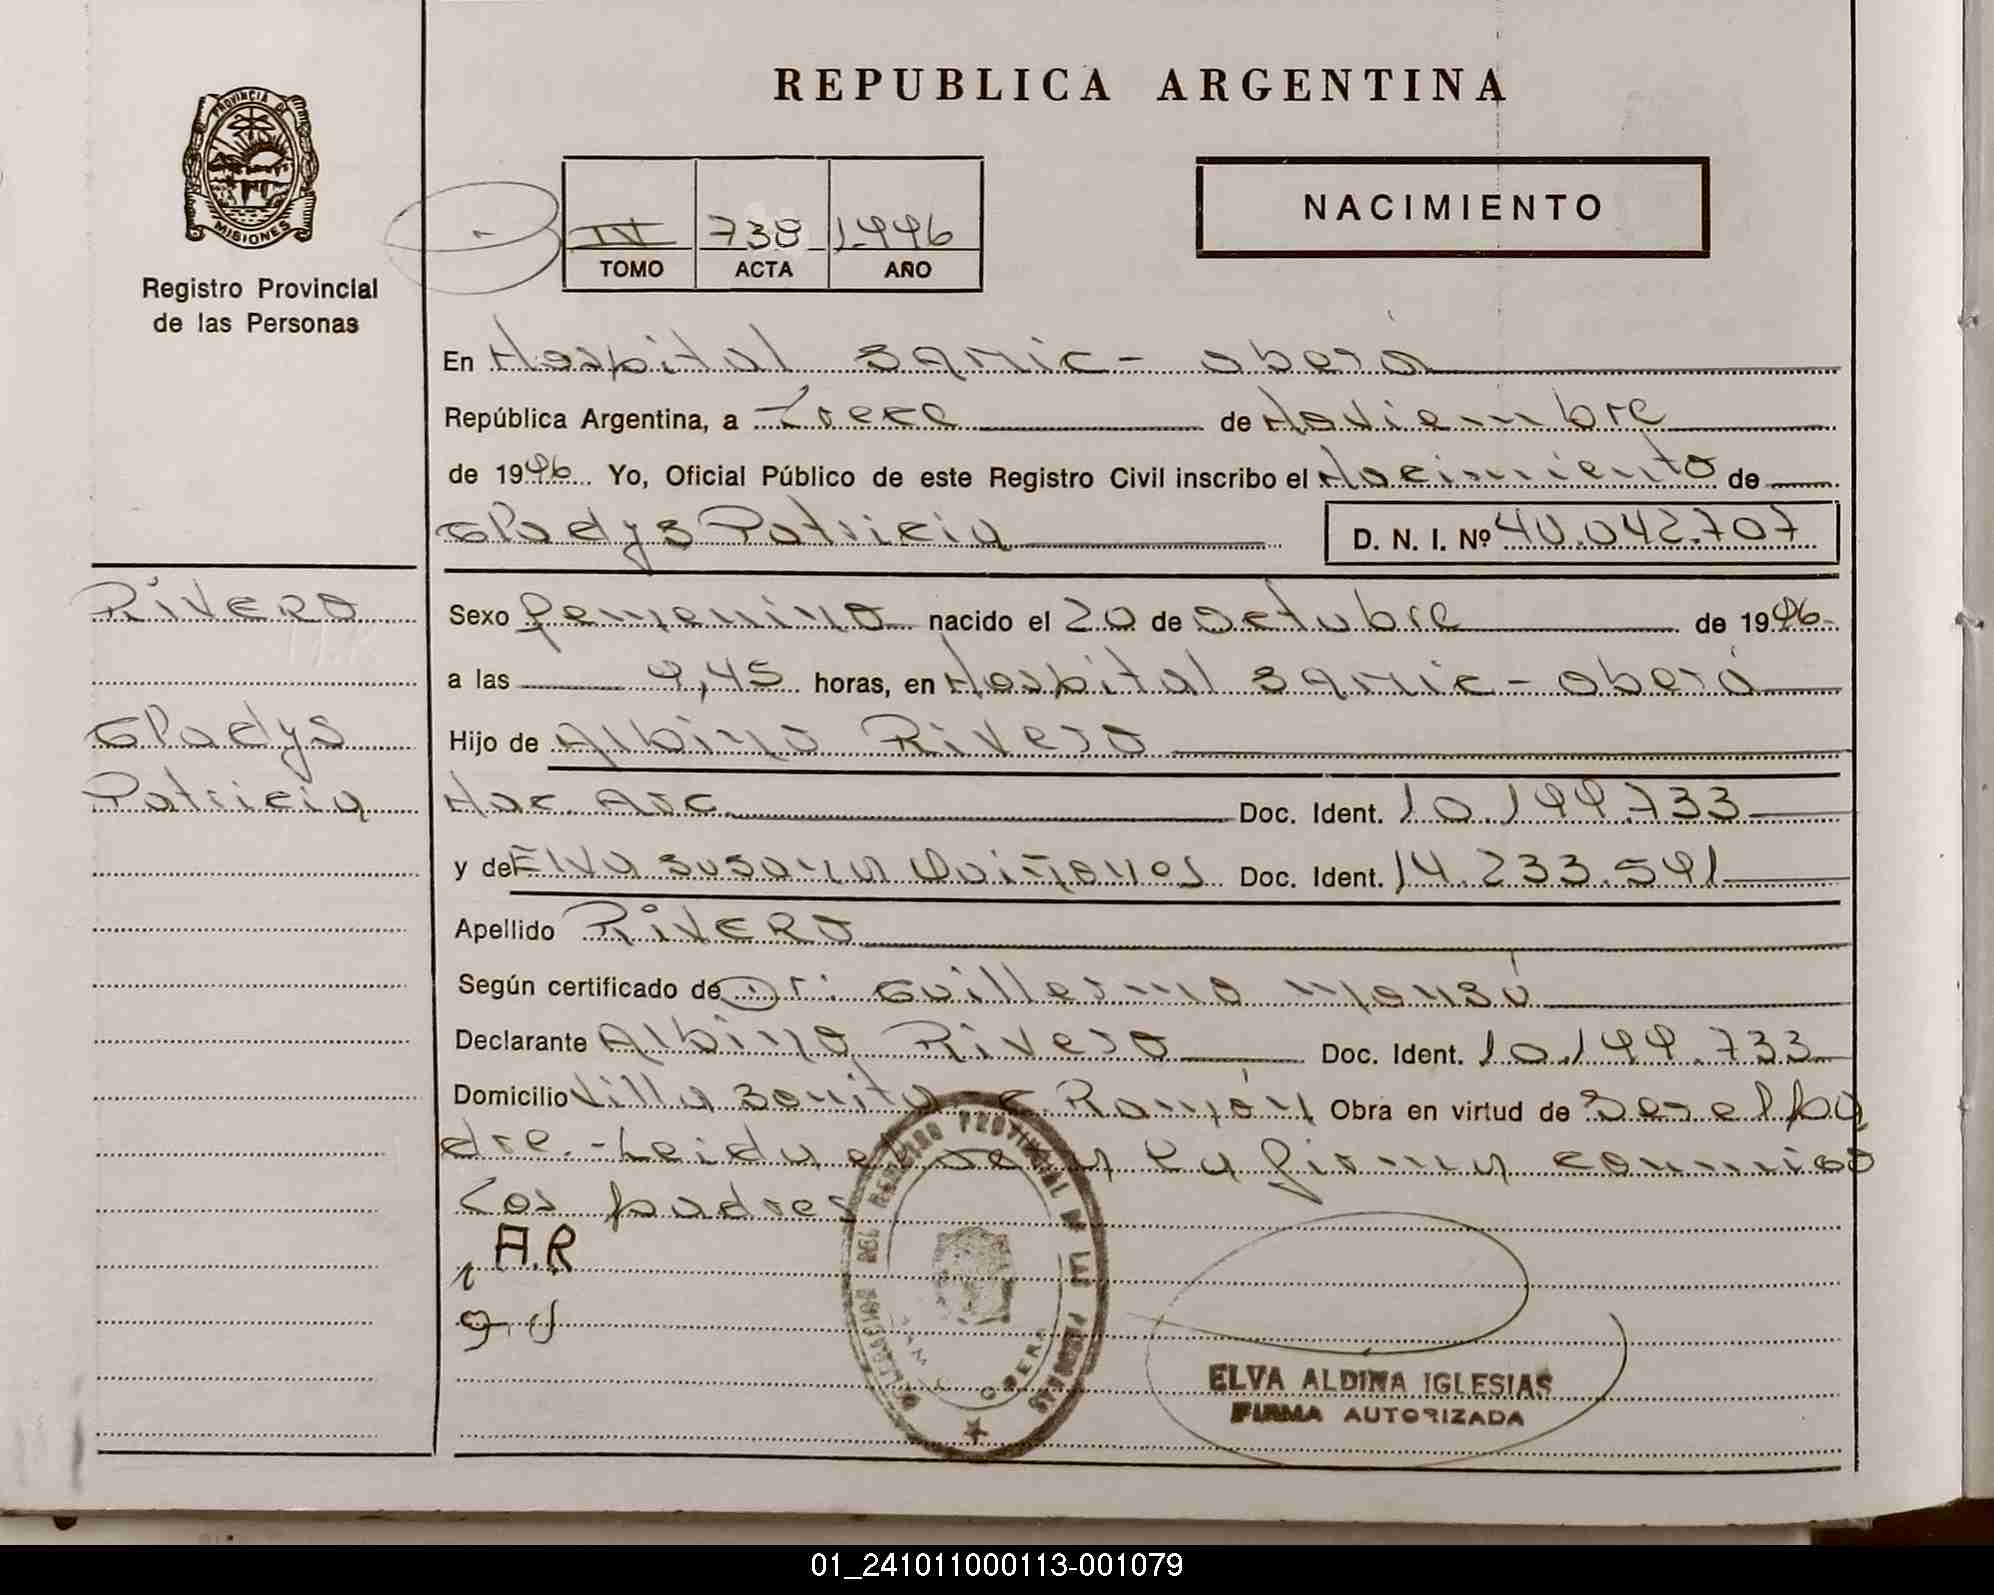 REPUBLICA ARGENTINA
PROVINCIA DE
MISIONES
Registro Provincial
de las Personas
IV 738 1996
TOMO ACTA AÑO
NACIMIENTO
En Hospital Samic - Oberá
República Argentina, a Trece de Noviembre
de 1996 Yo, Oficial Público de este Registro Civil inscribo el Nacimiento de
Gladys Patricia D. N. I. Nº 40.042.707
RIVERO
Gladys
Patricia
Sexo femenino nacido el 20 de octubre de 1996
a las 9,45 horas, en Hospital Samic - Oberá
Hijo de Albino Rivero
Nac. Arg. Doc. Ident. 10.199.733
y de Elva Susana Quiñones Doc. Ident. 14.233.591
Apellido RIVERO
Según certificado de Dr. Guillermo Monsú
Declarante Albino Rivero Doc. Ident. 10.199.733
Domicilio Villa Bonita C. Ramón Obra en virtud de Ser el pa
dre. - Leida el acta la firman conmigo
Los padres
A.R
DELEGACION DEL REGISTRO PROVINCIAL DE LAS PERSONAS
OBERA
ELVA ALDINA IGLESIAS
FIRMA AUTORIZADA
01_241011000113-001079